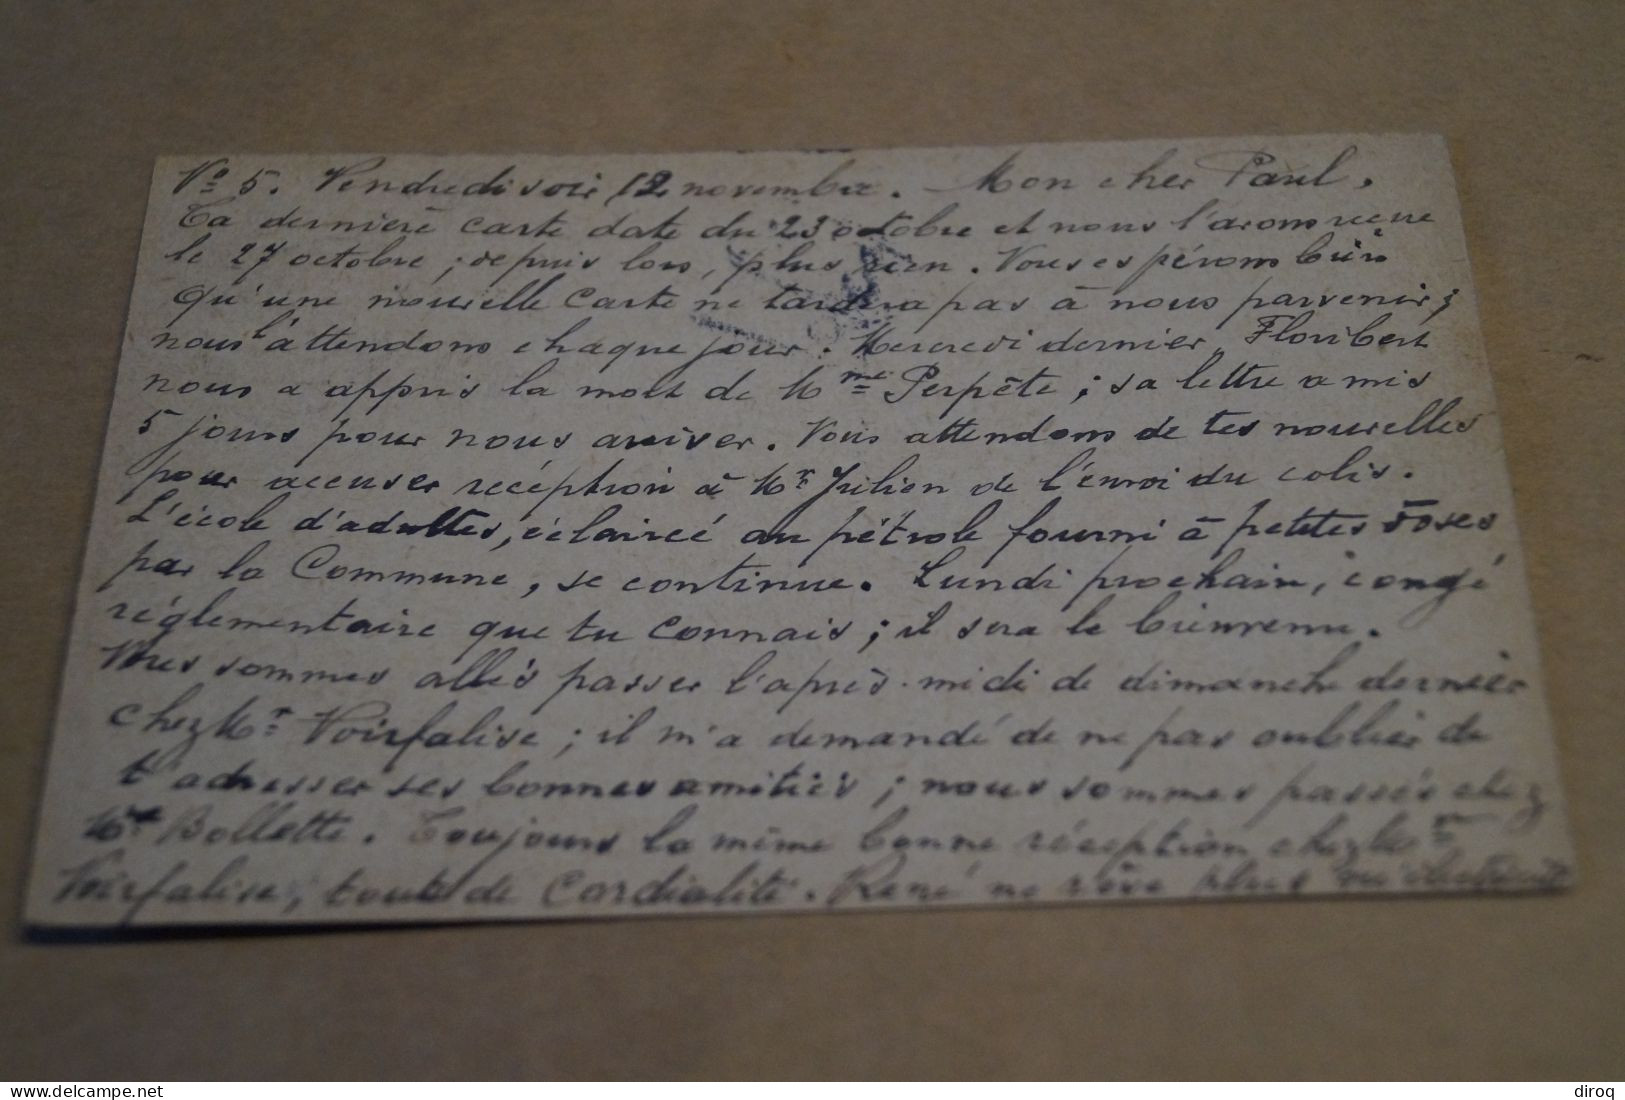 Nº 5. Vendredi soir 12 novembre. _ Mon cher Paul,
Ta dernière carte date du 23 octobre et nous l'avons reçue
le 27 octobre ; depuis lors, plus rien. Nous espérons bien
qu'une nouvelle carte ne tardera pas à nous parvenir ;
nous l'attendons chaque jour. Mercredi dernier Floribert
nous a appris la mort de Mme Perpète ; sa lettre a mis
5 jours pour nous arriver. Nous attendons de tes nouvelles
pour accuser réception à Mr Julien de l'envoi du colis.
L'école d'adultes, éclairée au pétrole fourni à petites doses
par la Commune, se continue. Lundi prochain, congé
réglementaire que tu connais ; il sera le bienvenu.
Nous sommes allés passer l'après-midi de dimanche dernier
chez Mr Voirfalise ; il m'a demandé de ne pas oublier de
t'adresser ses bonnes amitiés ; nous sommes passés chez
Mr Bollette. Toujours la même bonne réception chez Mr
Voirfalise, toute de cordialité. René ne rêve plus
delcampe.net
diroq